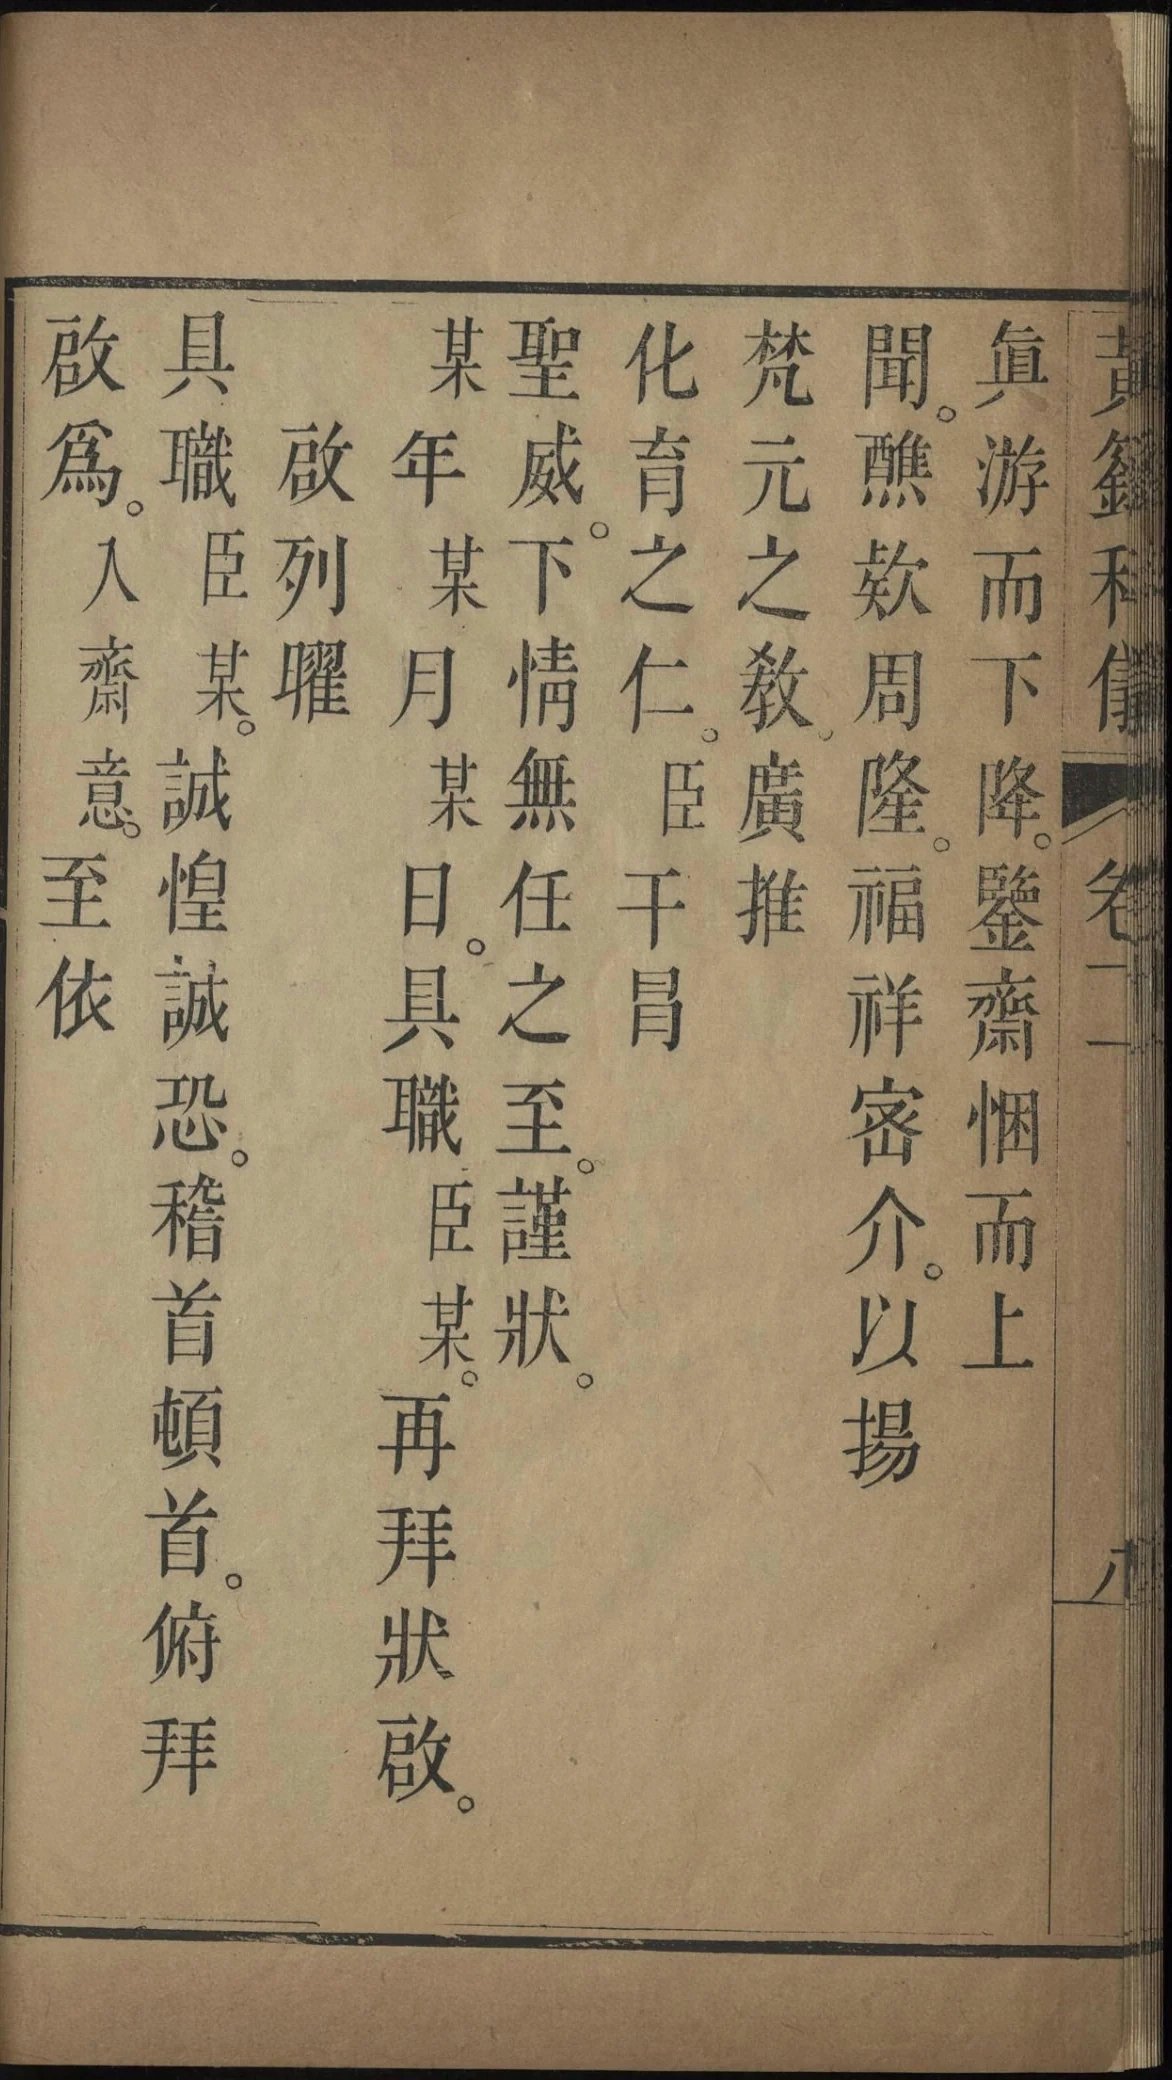 黃籙科儀 卷二
眞游而下降。鑒齋悃而上
聞。醮欵周隆。福祥密介。以揚
梵元之敎。廣推
化育之仁。臣干冒
聖威。下情無任之至。謹狀。
某年某月某日。具職臣某。再拜狀啟。
啟列曜
具職臣某。誠惶誠恐。稽首頓首。俯拜
啟爲。入齋意。至依